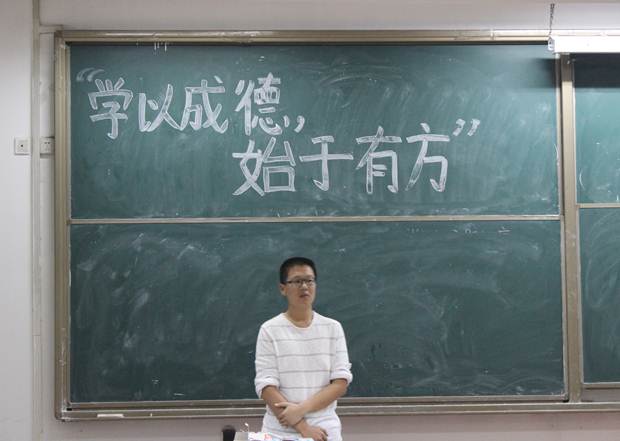 “学以成德,
始于有方”